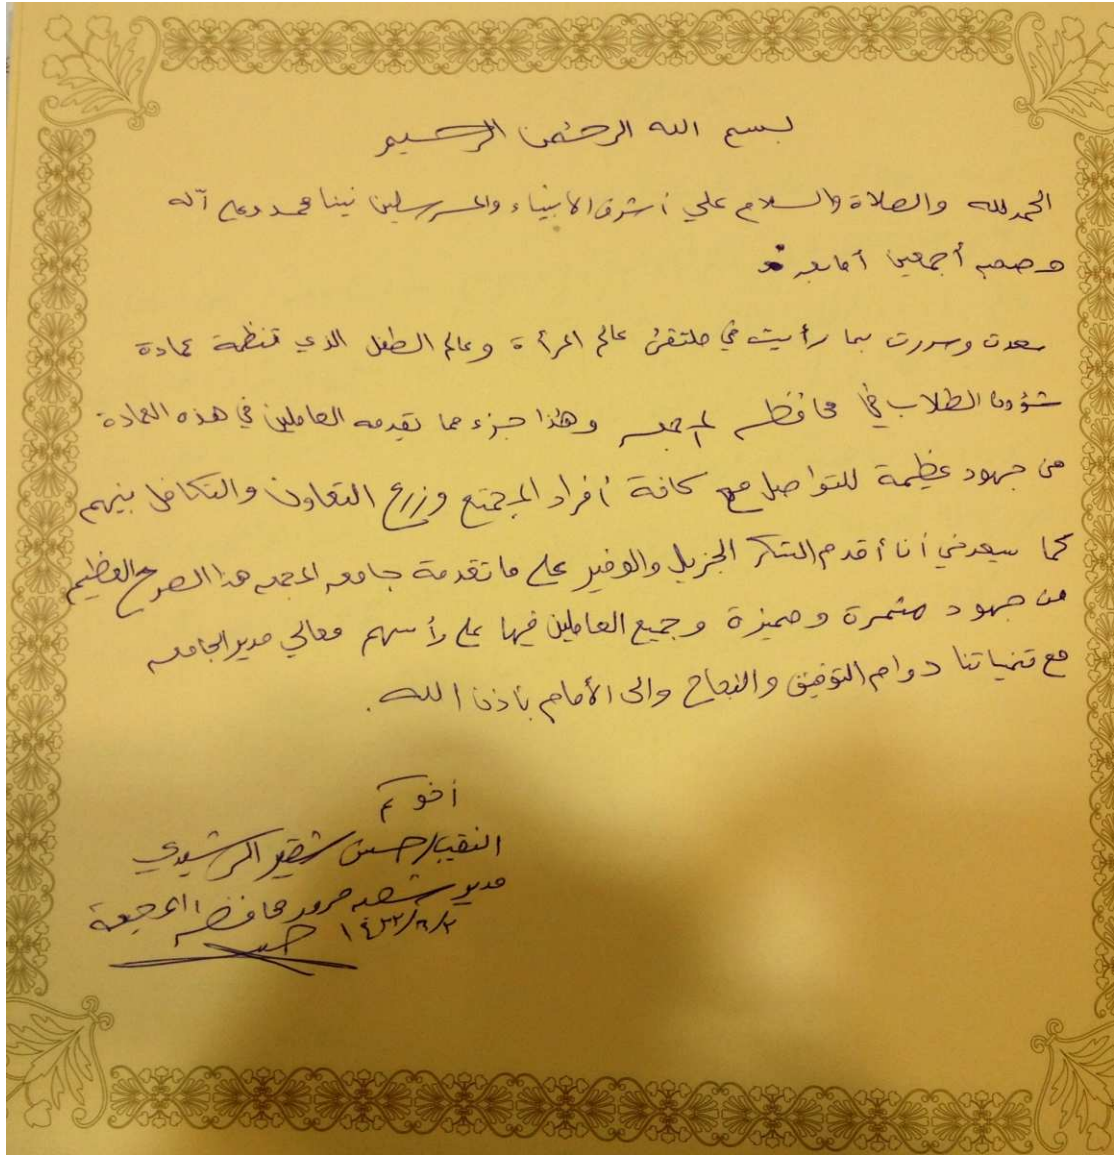 بسم الله الرحمن الرحيم
الحمد لله والصلاة والسلام علي أشرف الانبياء والمرسلين نبينا محمد وعلى آله
وصحبه أجمعين أما بعد
سعدت وسررت بما رأيت في ملتقى عالم المرأة وعالم الطفل الذي تنظمة عمادة
شؤون الطلاب في محافظه المجمعه وهذا جزء مما تقدمه العاملين في هذه العمادة
من جهود عظيمة للتواصل مع كافة أفراد المجتمع وزرع التعاون والتكافل بينهم
كما يسعدني أنا أقدم الشكر الجزيل والوفير على ما تقدمة جامعه المجمعه هذا الصرح العظيم
من جهود مثمرة ومميزة وجميع العاملين فيها على رأسهم معالي مدير الجامعه
مع تمنياتنا دوام التوفيق والنجاح والى الأمام بأذن الله.
أخوكم
النقيب/حسين الرشيدي
مدير شعبه مرور محافظه المجمعة